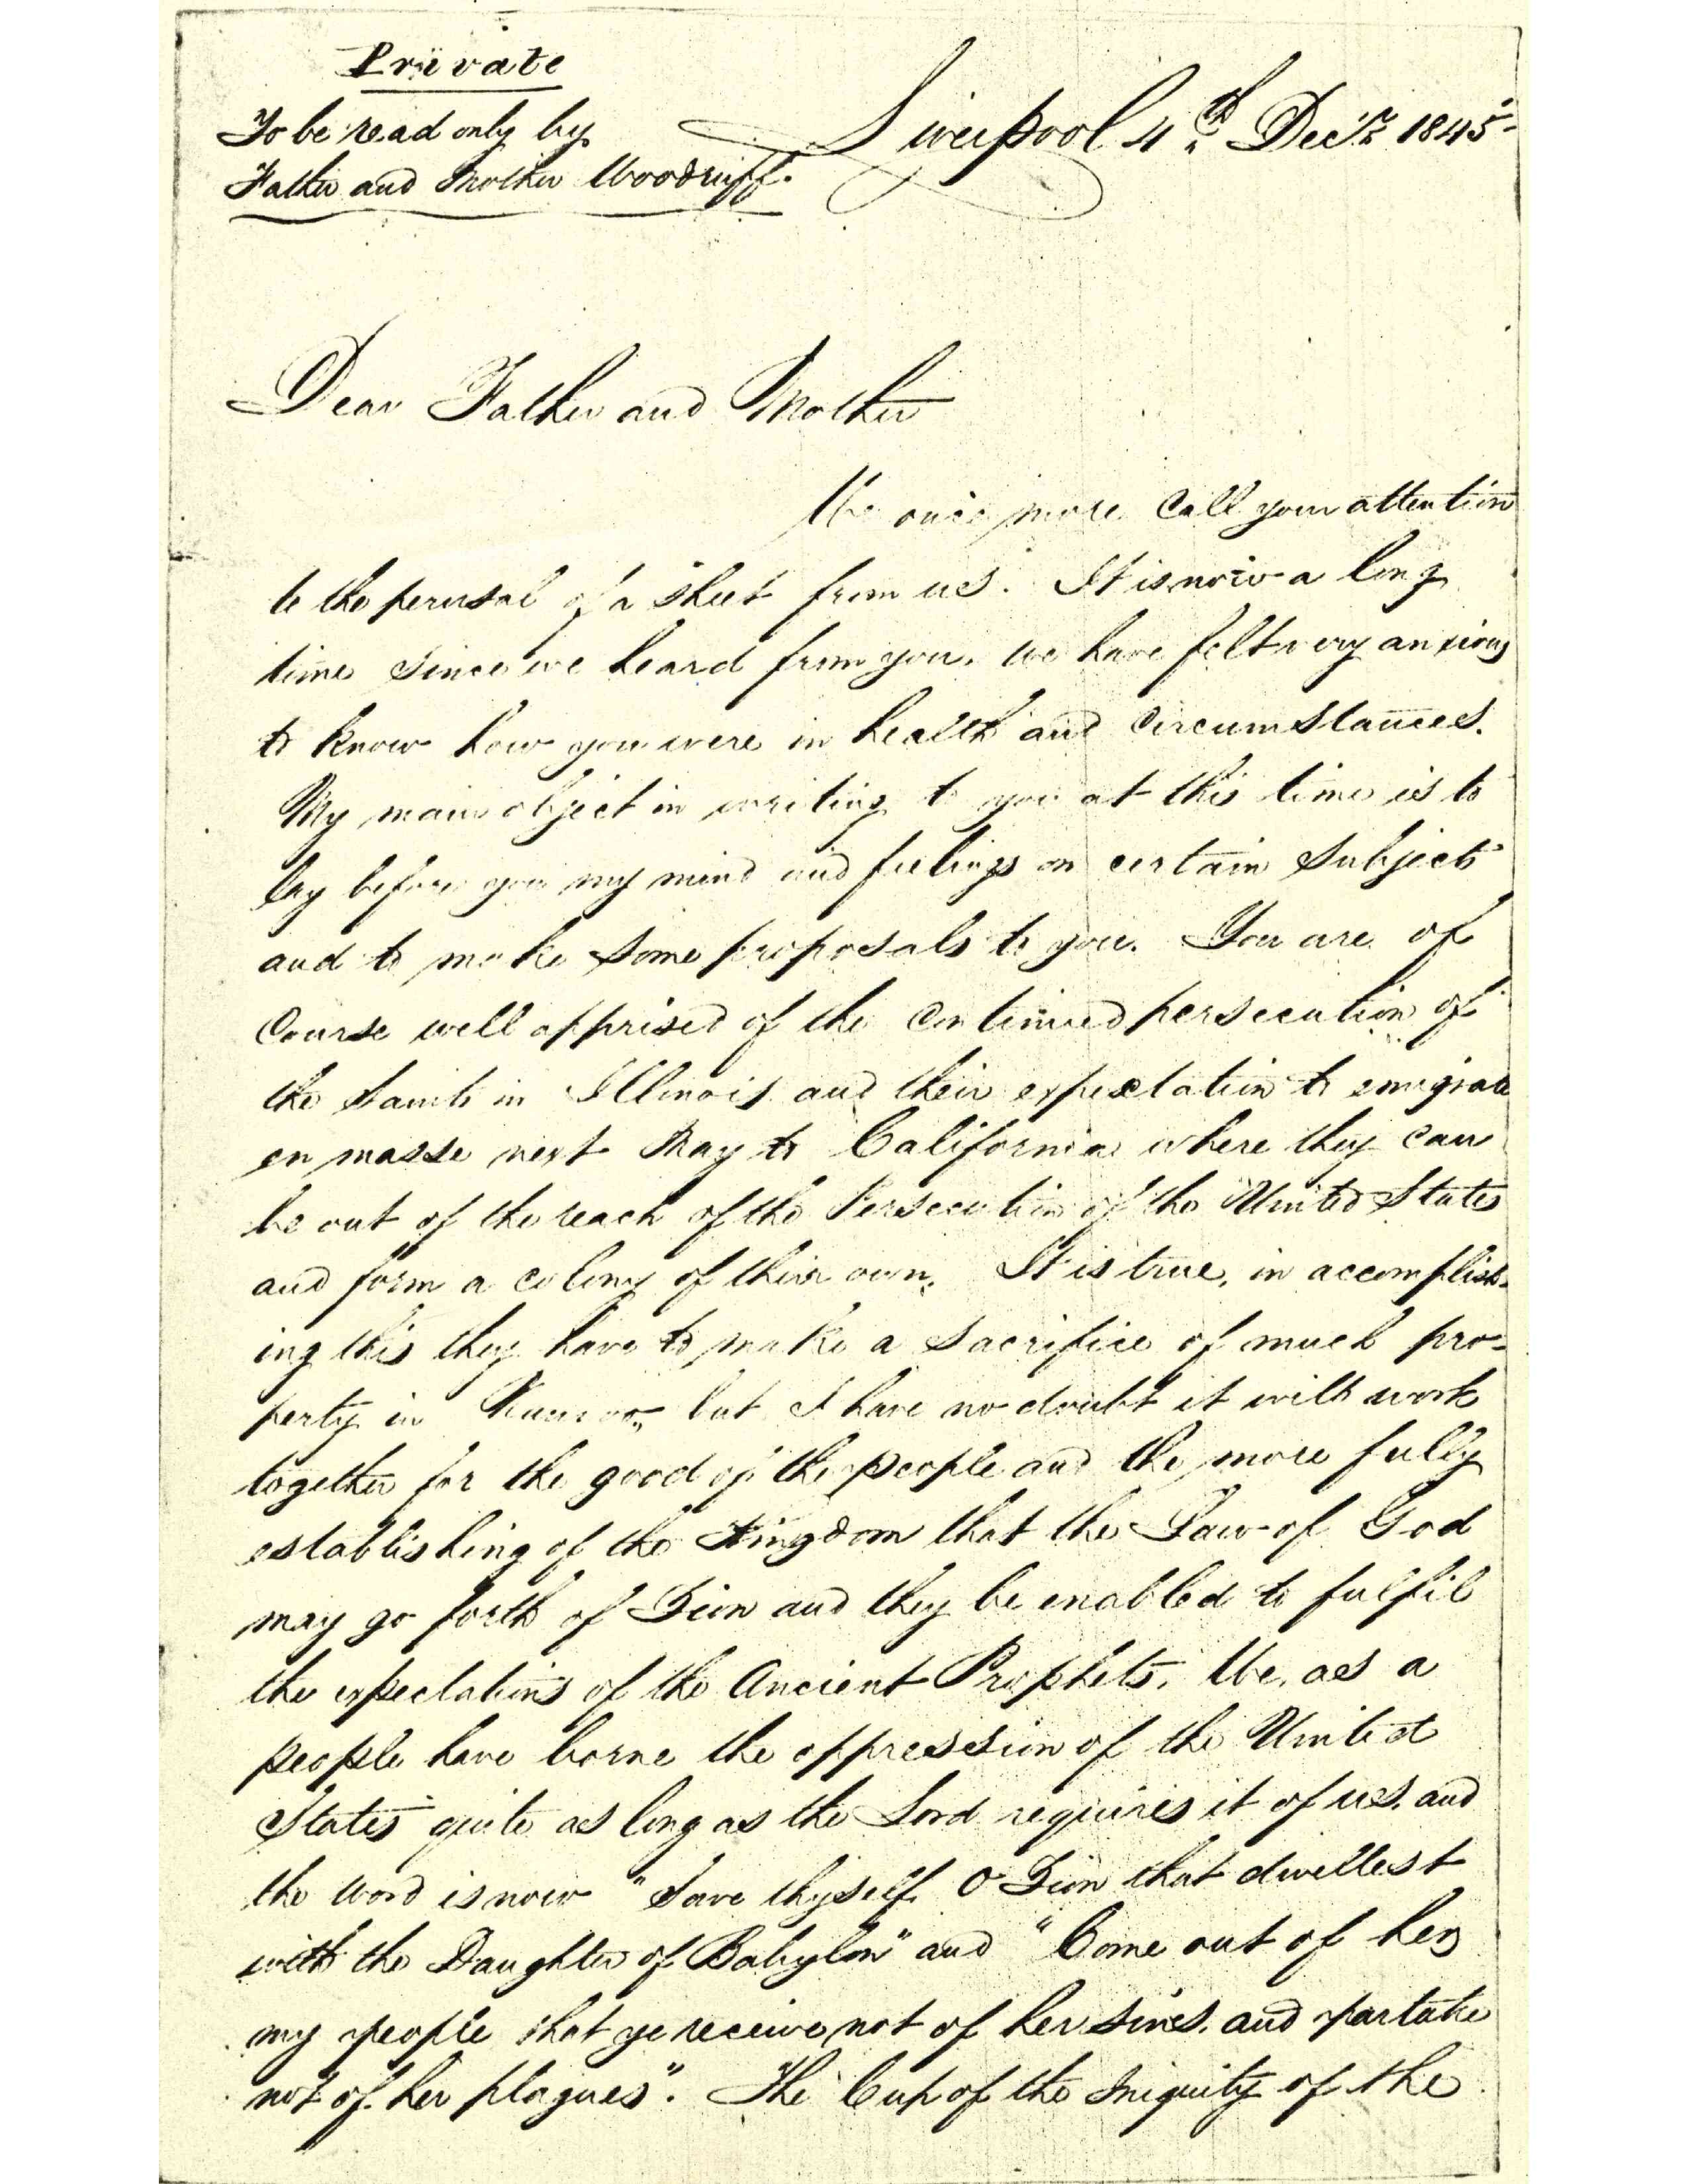 Private
To be read only by
Father and Mother Woodruff.
Liverpool 4th Decr. 1845
Dear Father and Mother
We once more call your attention
to the perusal of a sheet from us. It is now a long
time since we heard from you. we have felt very anxious
to know how you were in health and circumstances.
My main object in writing to you at this time is to
lay before you my mind and feelings on certain subjects
and to make some proposals to you. You are of
course well apprised of the continued persecution of
the Saints in Illinois and their expectation to emigrate
en masse next May to California where they can
be out of the reach of the Persecution of the United States
and form a colony of their own. It is true, in accomplish-
ing this they have to make a sacrifice of much pro-
perty in Nauvoo, but I have no doubt it will work
together for the good of the people and the more fully
establishing of the Kingdom that the Law of God
may go forth of Zion and they be enabled to fulfil
the expectations of the Ancient Prophets. We, as a
people have borne the oppression of the United
States quite as long as the Lord requires it of us. and
the word is now "Save thyself O Zion that dwellest
with the Daughter of Babylon" and "Come out of her
my people that ye receive not of her sins. and partake
not of her plagues". The Cup of the Iniquity of the